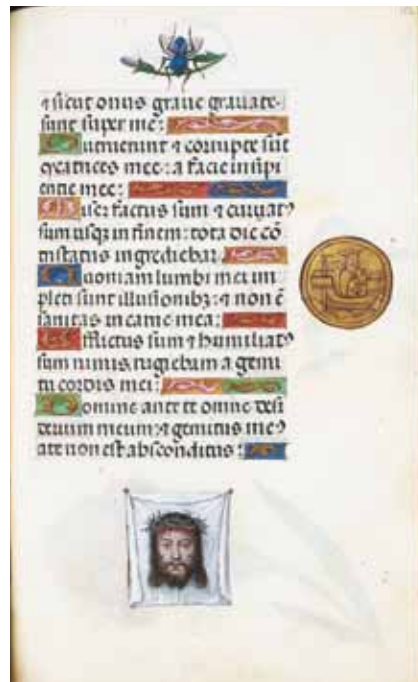 ⁊ sicut onus graue grauate
sunt super me:
Putruerunt ⁊ corrupte sūt
cicatrices mee: a facie insipi
entie mee:
Miser factus sum ⁊ curuatꝰ
sum usqꝫ in finem: tota die cō
tristatus ingrediebar:
Quoniam lumbi mei im
pleti sunt illusionibꝫ: ⁊ non ē
sanitas in carne mea:
Afflictus sum ⁊ humiliatꝰ
sum nimis rugiebam a gemi
tu cordis mei:
Domine ante te omne desi
derium meum: ⁊ gemitus meꝰ
a te non est absconditus: